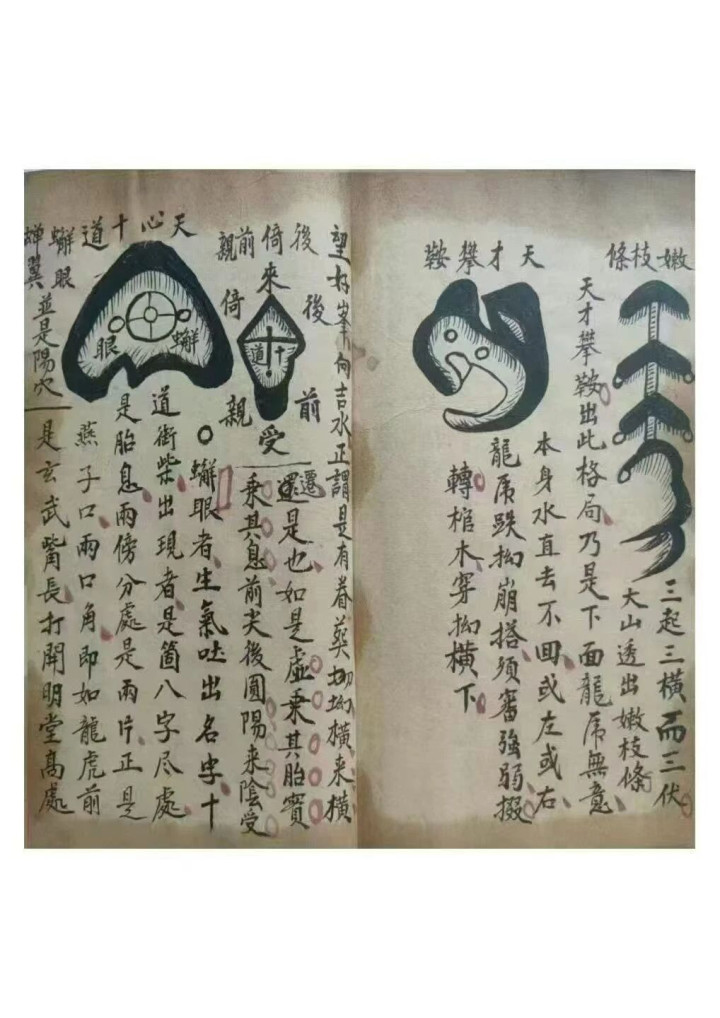 嫩枝條
三起三橫而三伏
大山透出嫩枝條
天才攀鞍
天才攀鞍出此格局乃是下面龍虎無意
本身水直去不回或左或右
龍虎跌拗崩搭須審強弱掇
轉棺木穿拗橫下
望好峯向吉水正謂是有眷葬拗橫来橫
後倚前親
來
後
倚
十道
前
親
受
還遷是也如是虛乘其胎實
乘其息前尖後圓陽来陰受
天心十道
蠏
眼
蠏眼者生氣吐出名字十
道街柴出現者是箇八字尽處
是胎息兩傍分處是兩片正是
燕子口兩口角即如龍虎前
蠏眼
蟬翼
並是陽穴
是玄武嘴長打開明堂高處